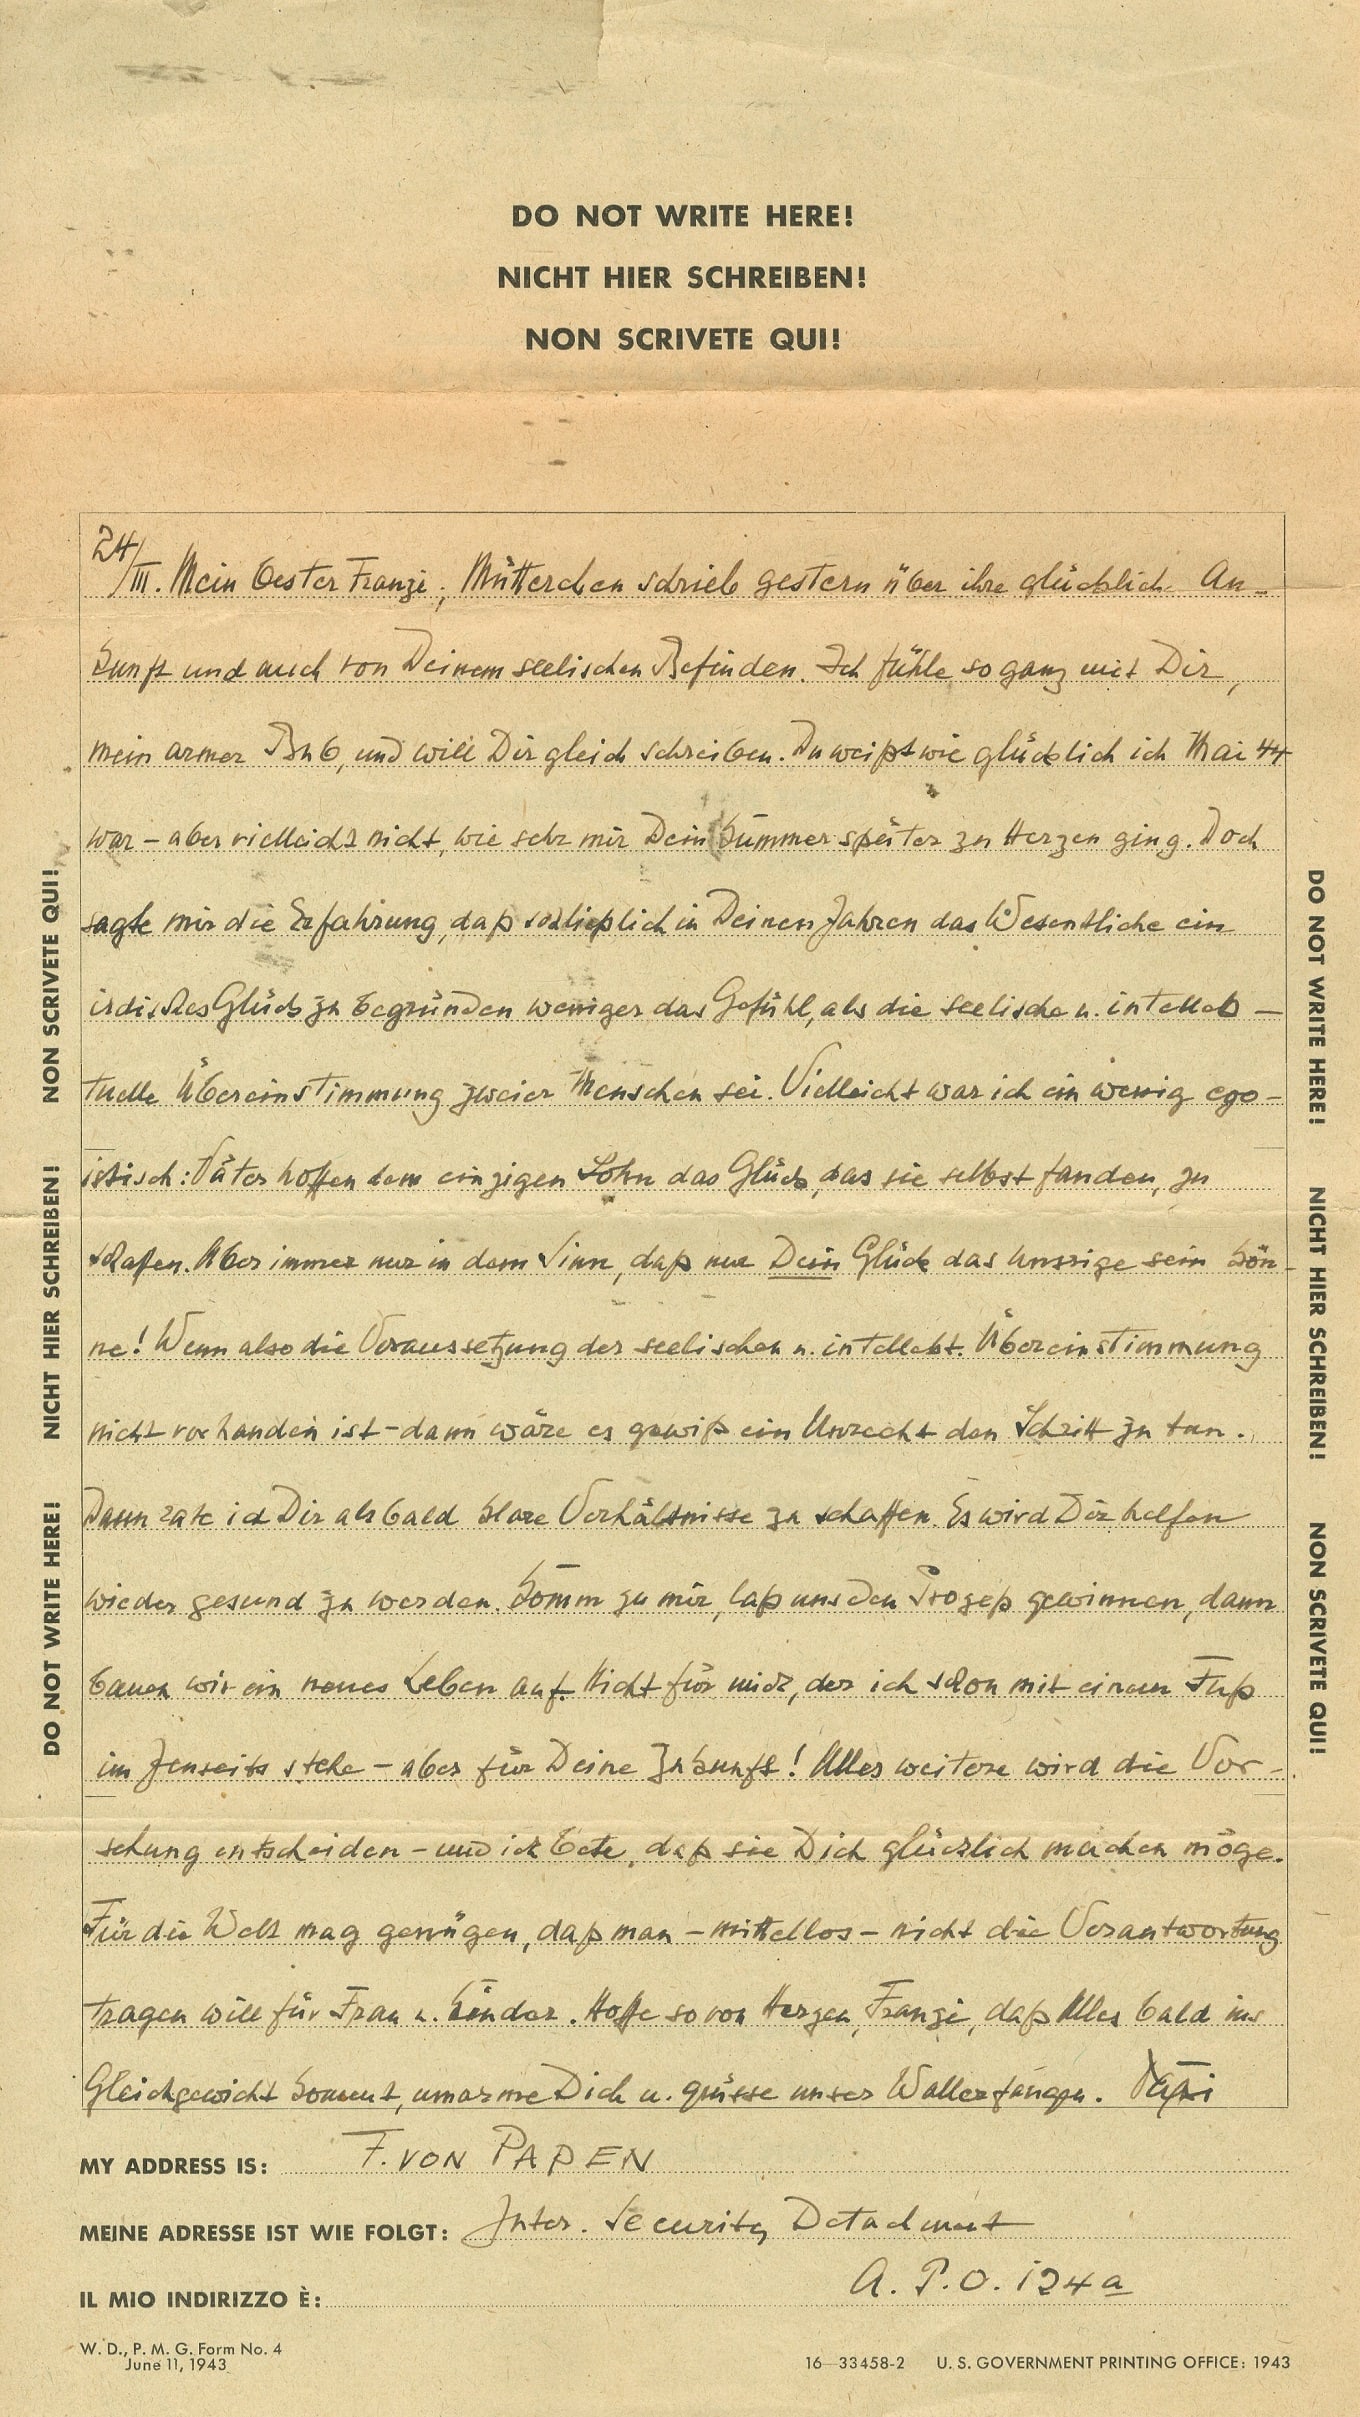 DO NOT WRITE HERE!
NICHT HIER SCHREIBEN!
NON SCRIVETE QUI!
24/III. Mein bester Franzi, Mütterchen schrieb gestern über ihre glücklich An-
kunft und auch von Deinem seelischen Befinden. Ich fühle so ganz mit Dir,
mein armer Bub, und will Dir gleich schreiben. Du weißt wie glücklich ich Mai 44
war – aber vielleicht nicht, wie sehr mir Dein Kummer später zu Herzen ging. Doch
sagte mir die Erfahrung, daß schließlich in Deinen Jahren das Wesentliche ein
irdisches Glück zu begründen weniger das Gefühl, als die seelische u. intellek–
tuelle Übereinstimmung zweier Menschen sei. Vielleicht war ich ein wenig ego–
istisch: Väter hoffen dem einzigen Sohn das Glück, das sie selbst fanden, zu
schaffen. Aber immer nur in dem Sinn, daß nur Dein Glück das unsrige sein kön-
ne! Wenn also die Voraussetzung der seelischen u. intellekt. Übereinstimmung
nicht vorhanden ist – dann wäre es gewiß ein Unrecht den Schritt zu tun.
Dann rate ich Dir alsbald klare Verhältnisse zu schaffen. Es wird Dir helfen
wieder gesund zu werden. Komm zu mir, laß uns den Prozeß gewinnen, dann
bauen wir ein neues Leben auf. Nicht für mich, der ich schon mit einem Fuß
im Jenseits stehe – aber für Deine Zukunft! Alles weitere wird die Vor-
sehung entscheiden – und ich bete, daß sie Dich glücklich machen möge.
Für die Welt mag genügen, daß man – mittellos – nicht die Verantwortung
tragen will für Frau u. Kinder. Hoffe so von Herzen, Franzi, daß Alles bald ins
Gleichgewicht kommt, umarme Dich u. grüsse unser Wallerfangen.
MY ADDRESS IS: F. VON PAPEN
MEINE ADRESSE IST WIE FOLGT: Inter. Security Detachment
IL MIO INDIRIZZO È: A. P. O. 124a
W. D., P. M. G. Form No. 4
June 11, 1943
16—33458-2 U. S. GOVERNMENT PRINTING OFFICE: 1943
DO NOT WRITE HERE! NICHT HIER SCHREIBEN! NON SCRIVETE QUI!
DO NOT WRITE HERE! NICHT HIER SCHREIBEN! NON SCRIVETE QUI!